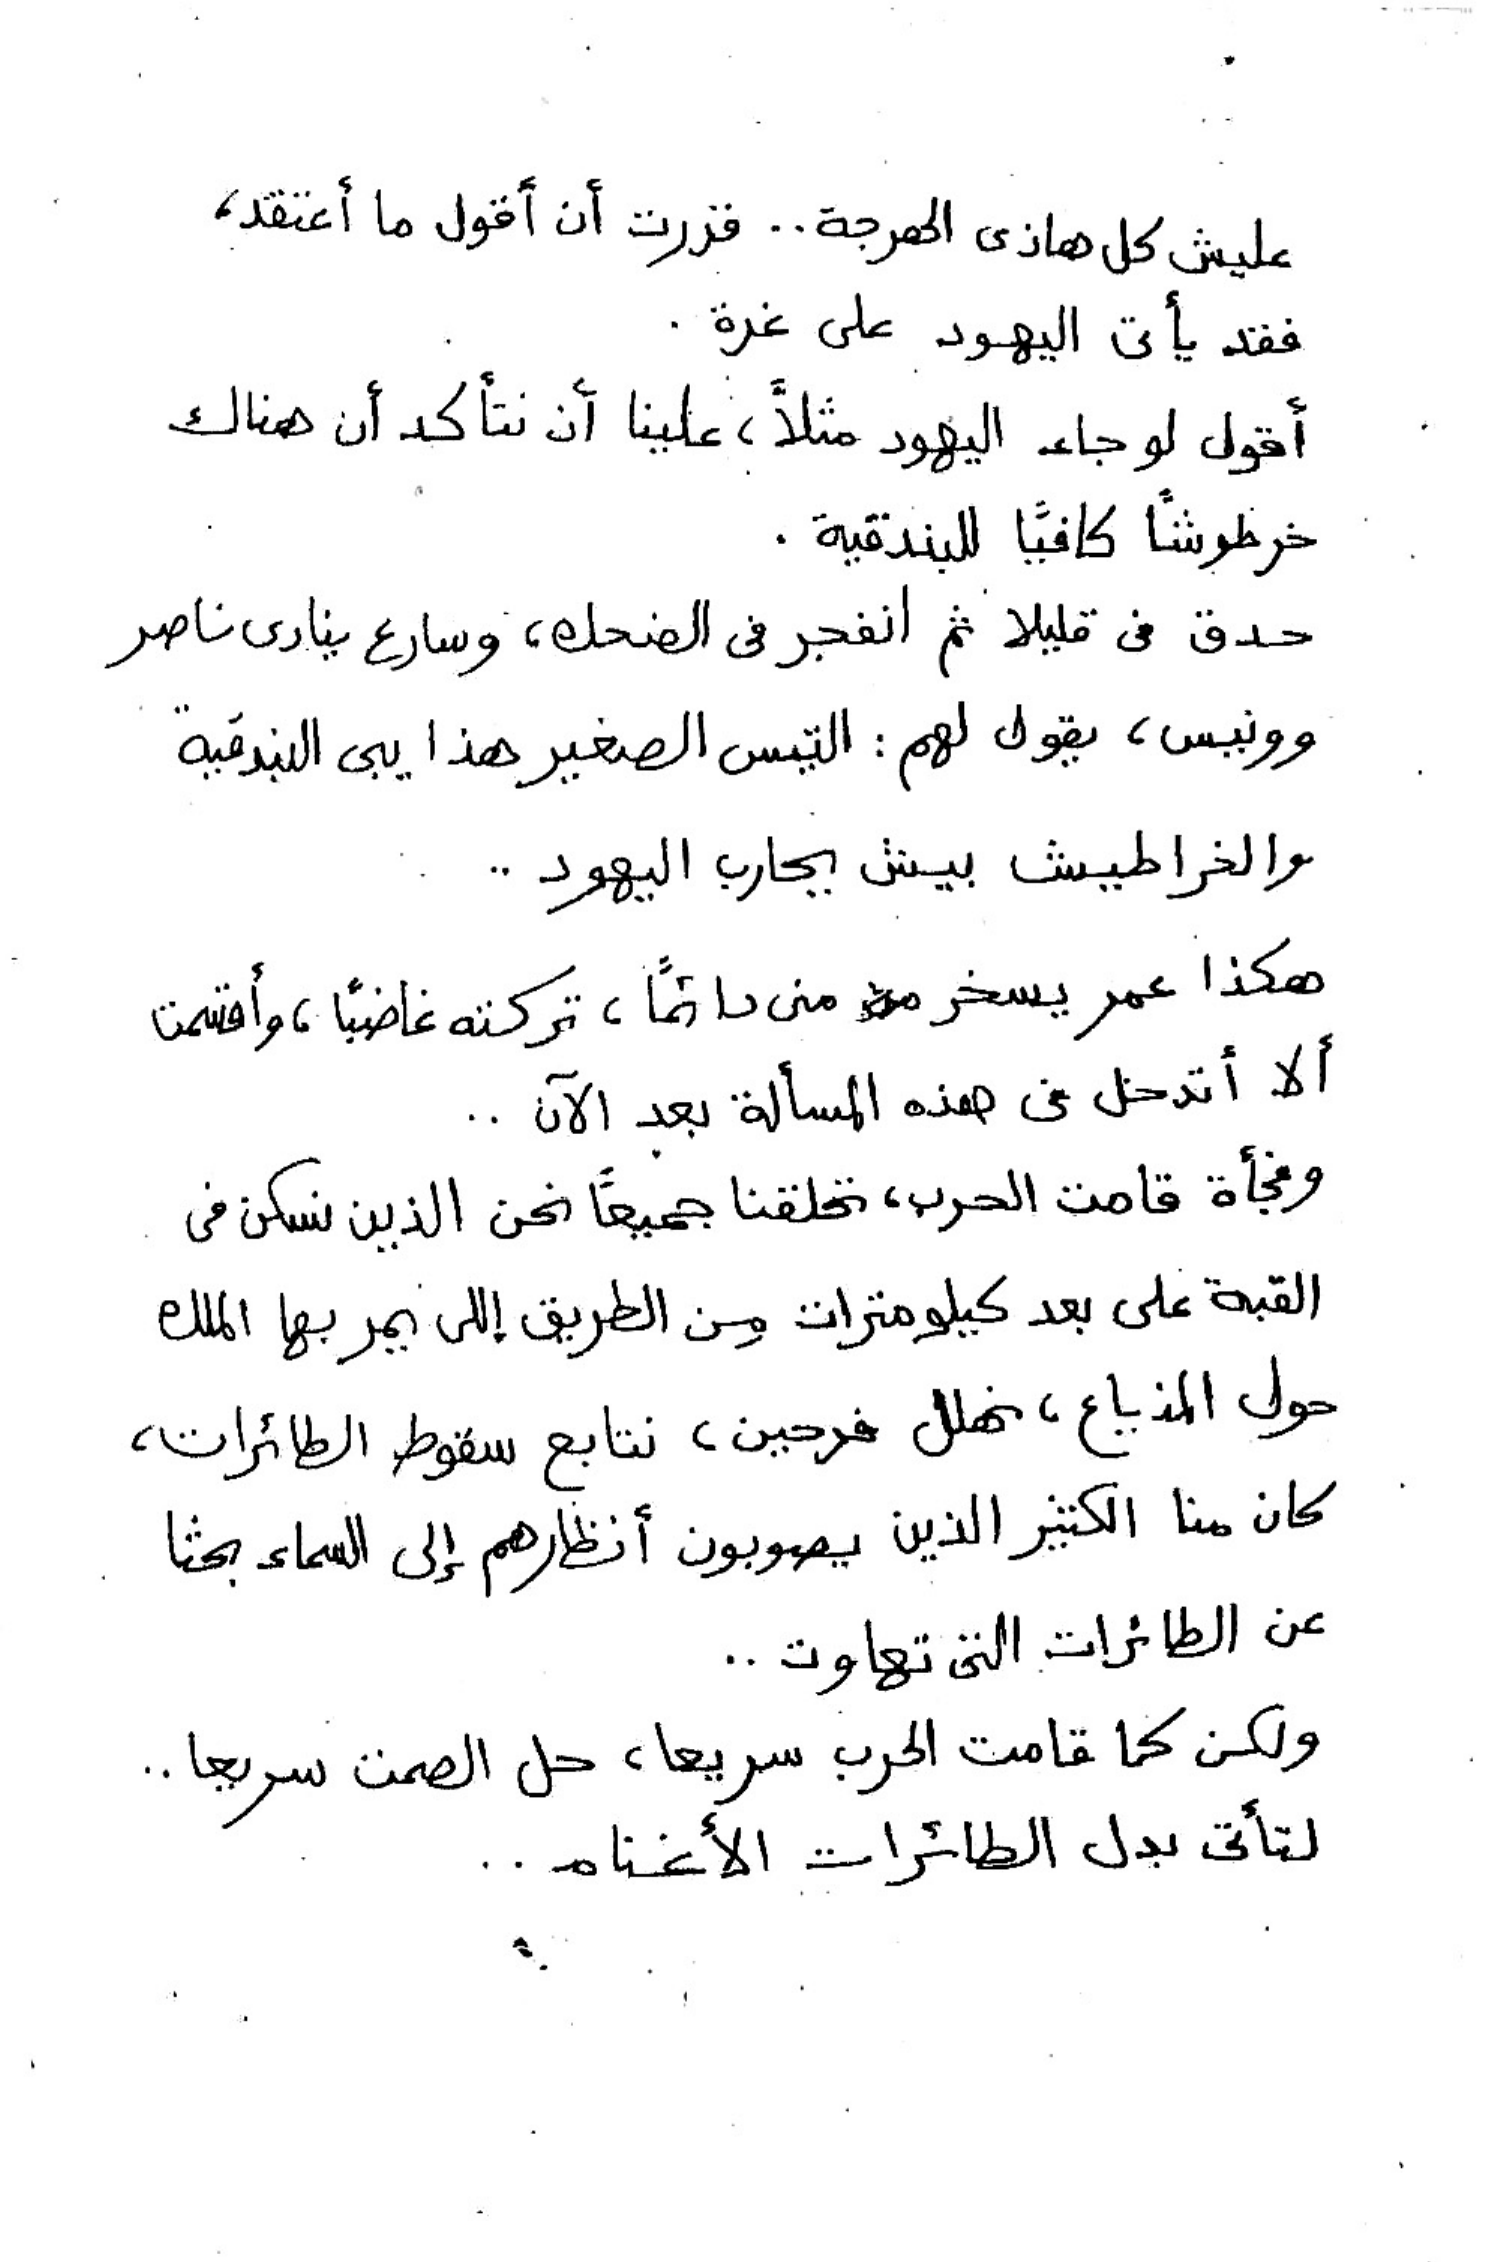 عليش كل هاذى الهرجة.. قررت أن أقول ما أعتقد،
فقد يأتى اليهود على غرة .
أقول لو جاء اليهود مثلاً، علينا أن نتأكد أن هناك
خرطوشًا كافيًا للبندقية .
حدق فى قليلا ثم انفجر فى الضحك، وسارع ينادى ناصر
وونيس، يقول لهم : التيس الصغير هذا يبى البندقية
والخراطيش بيش يحارب اليهود ..
هكذا عمر يسخر منى دائمًا، تركته غاضبًا، وأقسمت
ألا أتدخل فى هذه المسألة بعد الآن ..
وفجأة قامت الحرب، تحلقنا جميعًا نحن الذين نسكن فى
القبة على بعد كيلومترات من الطريق إللى يمر بها الملك
حول المذياع، نهلل فرحين، نتابع سقوط الطائرات،
كان منا الكثير الذين يصوبون أنظارهم إلى السماء بحثا
عن الطائرات التى تهاوت ..
ولكن كما قامت الحرب سريعا، حل الصمت سريعا..
لتأتى بدل الطائرات الأغنام ..